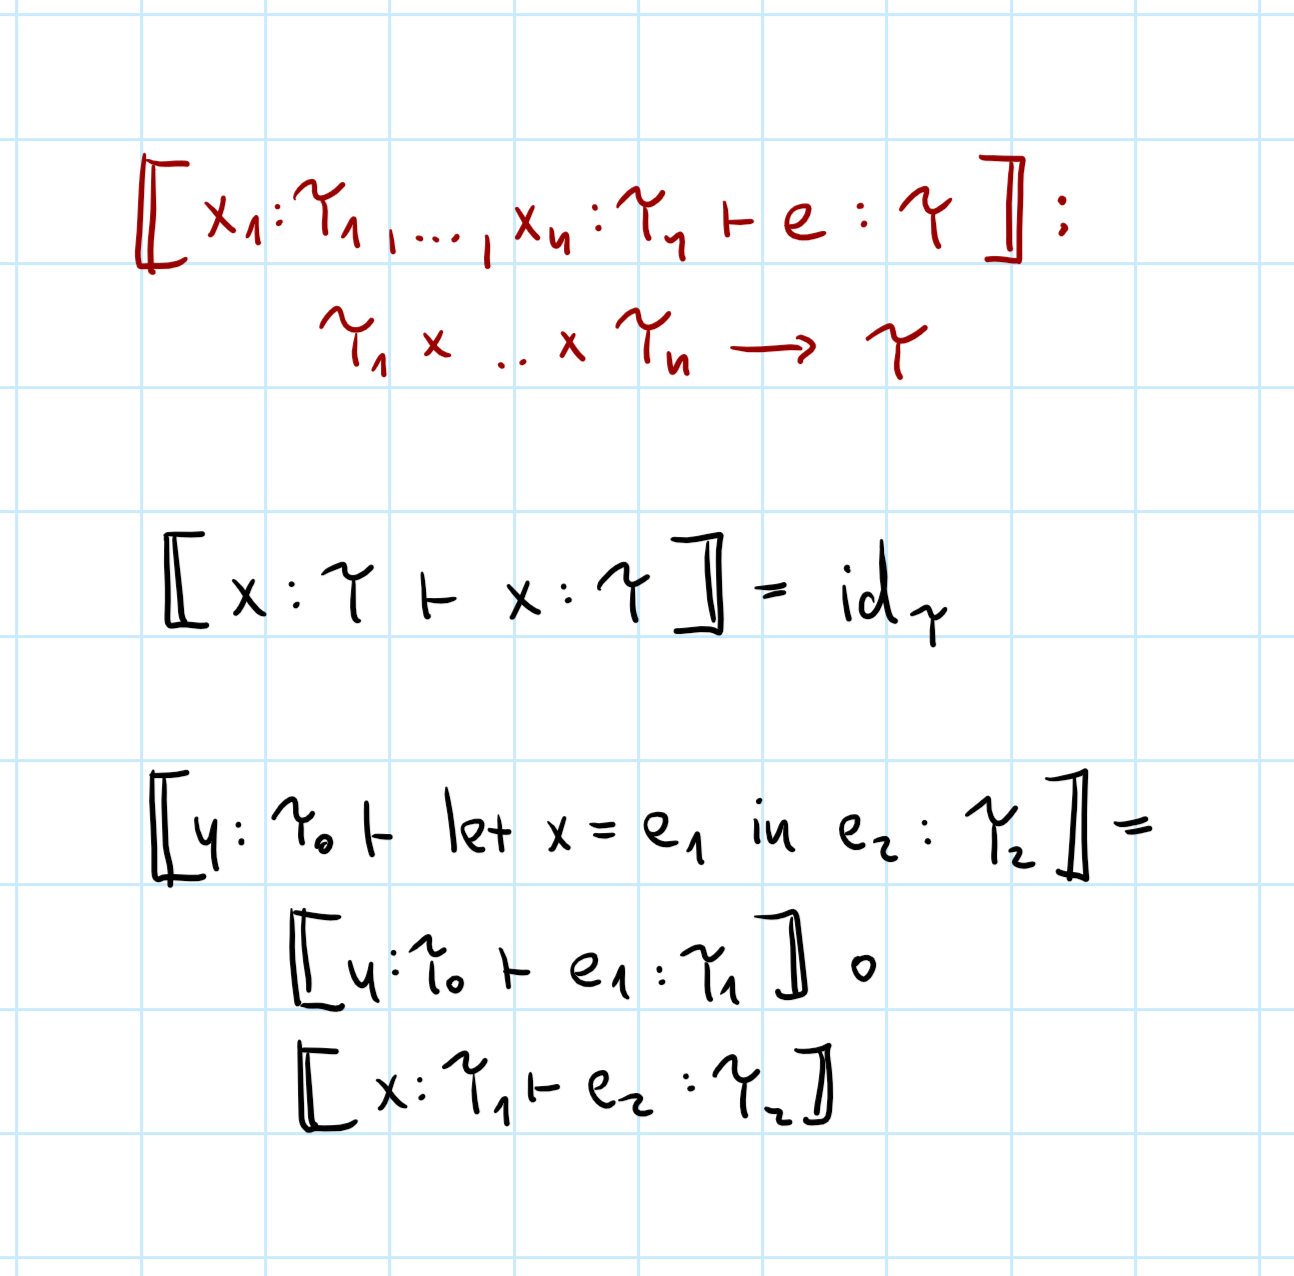 ⟦ x₁ : τ₁ , ... , xₙ : τₙ ⊢ e : τ ⟧ :
τ₁ × .. × τₙ ⟶ τ
⟦ x : τ ⊢ x : τ ⟧ = id_τ
⟦ y : τ₀ ⊢ let x = e₁ in e₂ : τ₂ ⟧ =
⟦ y : τ₀ ⊢ e₁ : τ₁ ⟧ ∘
⟦ x : τ₁ ⊢ e₂ : τ₂ ⟧